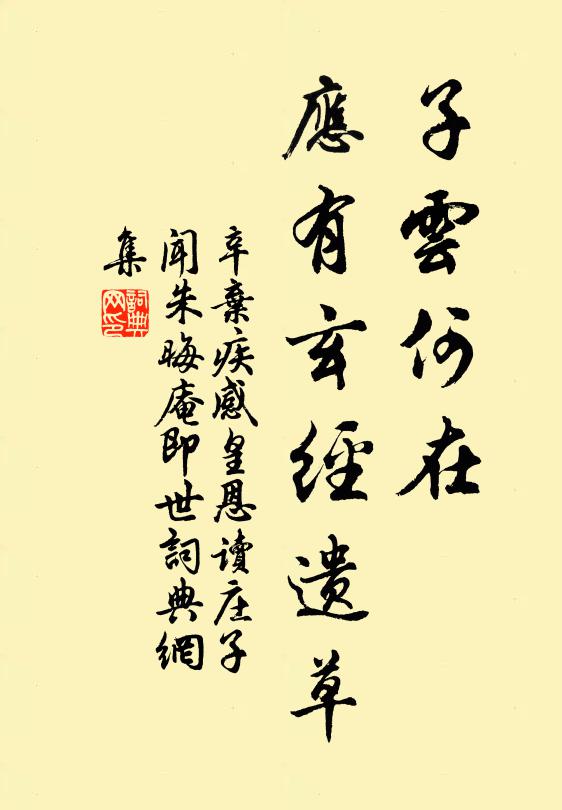 子雲何在
應有玄經遺草
辛棄疾感皇恩讀庄子
聞朱晦庵即世詞典網
集
詞典
网印